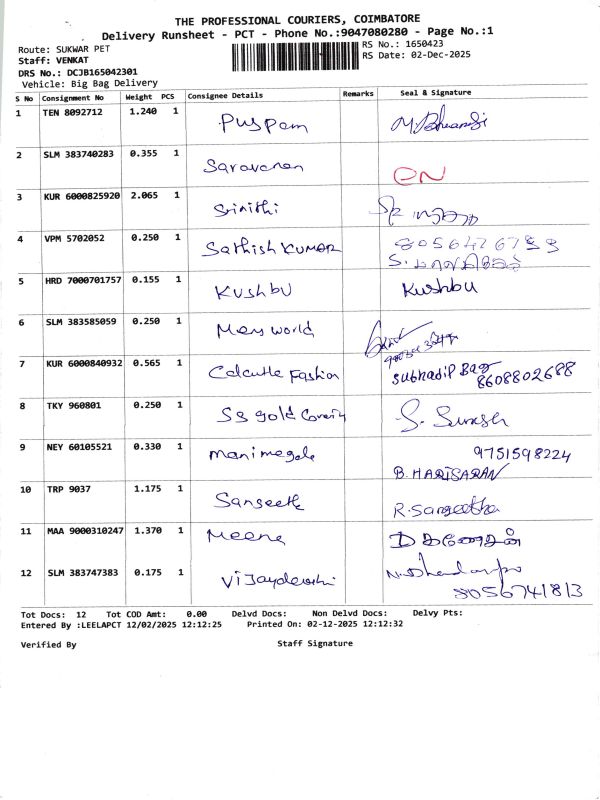 THE PROFESSIONAL COURIERS, COIMBATORE
Delivery Runsheet - PCT - Phone No.:9047080280 - Page No.:1
Route: SUKWAR PET
RS No.: 1650423
Staff: VENKAT
RS Date: 02-Dec-2025
DRS No.: DCJB165042301
Vehicle: Big Bag Delivery
S No Consignment No Weight PCS Consignee Details Remarks Seal & Signature
1 TEN 8092712 1.240 1 Puspam
2 SLM 383740283 0.355 1 Saravanan
3 KUR 6000825920 2.065 1 Srinithi
4 VPM 5702052 0.250 1 Sathish KUMAR
5 HRD 7000701757 0.155 1 KUSHBU Kushbu
6 SLM 383585059 0.250 1 Mens world
7 KUR 6000840932 0.565 1 Calcutte Fashion Subhadip Bag
8608802688
8 TKY 960801 0.250 1 SS gold S. Suresh
9 NEY 60105521 0.330 1 manimegale 9751598224
B. HARISARAN
10 TRP 9037 1.175 1 Sangeeth R. Sangeetha
11 MAA 9000310247 1.370 1 Meena
12 SLM 383747383 0.175 1 Vijaydevshi
8056741813
Tot Docs: 12 Tot COD Amt: 0.00 Delvd Docs: Non Delvd Docs: Delvy Pts:
Entered By :LEELAPCT 12/02/2025 12:12:25 Printed On: 02-12-2025 12:12:32
Verified By Staff Signature